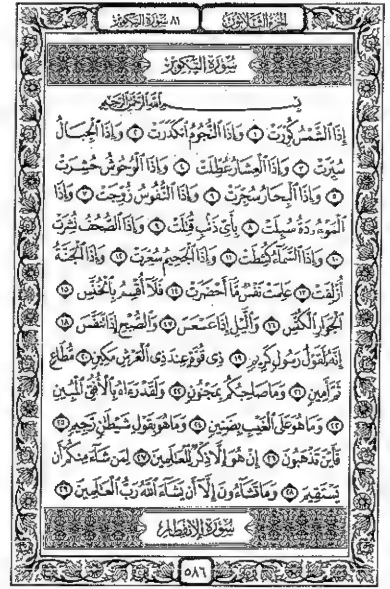 الجزء الثلاثون ٨١ سورة التكوير
سُورَةُ التَّكْوِيرِ
بِسْمِ ٱللَّهِ ٱلرَّحْمَٰنِ ٱلرَّحِيمِ
إِذَا ٱلشَّمْسُ كُوِّرَتْ ١ وَإِذَا ٱلنُّجُومُ ٱنكَدَرَتْ ٢ وَإِذَا ٱلْجِبَالُ
سُيِّرَتْ ٣ وَإِذَا ٱلْعِشَارُ عُطِّلَتْ ٤ وَإِذَا ٱلْوُحُوشُ حُشِرَتْ
٥ وَإِذَا ٱلْبِحَارُ سُجِّرَتْ ٦ وَإِذَا ٱلنُّفُوسُ زُوِّجَتْ ٧ وَإِذَا
ٱلْمَوْءُۥدَةُ سُئِلَتْ ٨ بِأَيِّ ذَنۢبٍ قُتِلَتْ ٩ وَإِذَا ٱلصُّحُفُ نُشِرَتْ
١٠ وَإِذَا ٱلسَّمَآءُ كُشِطَتْ ١١ وَإِذَا ٱلْجَحِيمُ سُعِّرَتْ ١٢ وَإِذَا ٱلْجَنَّةُ
أُزْلِفَتْ ١٣ عَلِمَتْ نَفْسٌ مَّآ أَحْضَرَتْ ١٤ فَلَآ أُقْسِمُ بِٱلْخُنَّسِ ١٥
ٱلْجَوَارِ ٱلْكُنَّسِ ١٦ وَٱلَّيْلِ إِذَا عَسْعَسَ ١٧ وَٱلصُّبْحِ إِذَا تَنَفَّسَ ١٨
إِنَّهُۥ لَقَوْلُ رَسُولٍ كَرِيمٍ ١٩ ذِى قُوَّةٍ عِندَ ذِى ٱلْعَرْشِ مَكِينٍ ٢٠ مُّطَاعٍ
ثَمَّ أَمِينٍ ٢١ وَمَا صَاحِبُكُم بِمَجْنُونٍ ٢٢ وَلَقَدْ رَءَاهُ بِٱلْأُفُقِ ٱلْمُبِينِ
٢٣ وَمَا هُوَ عَلَى ٱلْغَيْبِ بِضَنِينٍ ٢٤ وَمَا هُوَ بِقَوْلِ شَيْطَٰنٍ رَّجِيمٍ ٢٥
فَأَيْنَ تَذْهَبُونَ ٢٦ إِنْ هُوَ إِلَّا ذِكْرٌ لِّلْعَٰلَمِينَ ٢٧ لِمَن شَآءَ مِنكُمْ أَن
يَسْتَقِيمَ ٢٨ وَمَا تَشَآءُونَ إِلَّآ أَن يَشَآءَ ٱللَّهُ رَبُّ ٱلْعَٰلَمِينَ ٢٩
سُورَةُ الانفِطَارِ
٥٨٦